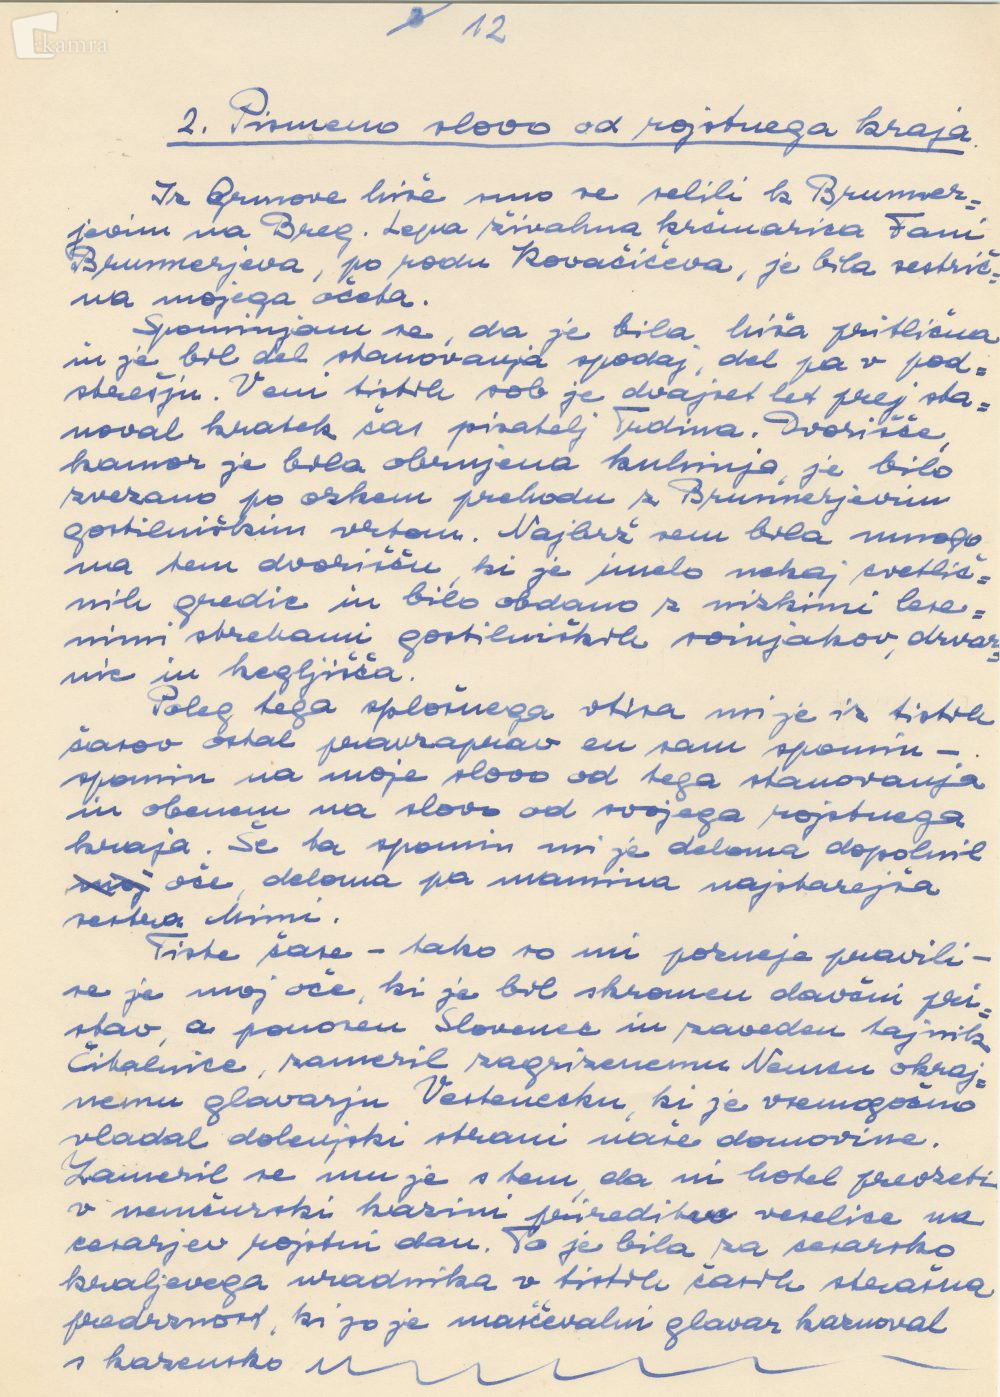 kamra
12
2. Pismeno slovo od rojstnega kraja.
Iz Grmove hiše smo se selili k Brunner-
jevim na Breg. Lepa živahna krčmarica Fani
Brunnerjeva, po rodu Kovačičeva, je bila sestrič-
na mojega očeta.
Spominjam se, da je bila hiša pritlična
in je bil del stanovanja spodaj, del pa v pod-
strešju. V eni tistih sob je dvajset let prej sta-
noval kratek čas pisatelj Trdina. Dvorišče,
kamor je bila obrnjena kuhinja, je bilo
zvezano po ozkem prehodu z Brunnerjevim
gostilniškim vrtom. Najbrž sem bila mnogo
na tem dvorišču, ki je imelo nekaj cvetlič-
nih gredic in bilo obdano z nizkimi lese-
nimi strehami gostilniških svinjakov, drvar-
nic in kegljišča.
Poleg tega splošnega vtisa mi je iz tistih
časov ostal pravzaprav en sam spomin –
spomin na moje slovo od tega stanovanja
in obenem na slovo od svojega rojstnega
kraja. Še ta spomin mi je deloma dopolnil
moj oče, deloma pa mamina najstarejša
sestra Mimi.
Tiste čase – tako so mi pozneje pravili –
se je moj oče, ki je bil skromen davčni pri-
stav, a ponosen Slovenec in zaveden tajnik
Čitalnice, zameril zagrizenemu Nemcu okraj-
nemu glavarju Vestenecku, ki je vsemogočno
vladal dolenjski strani naše domovine.
Zameril se mu je s tem, da ni hotel prevzeti
v nemčurski kazini prireditev veselice na
cesarjev rojstni dan. To je bila za cesarsko
kraljevega uradnika v tistih časih strašna
predrznost, ki jo je maščevalni glavar kaznoval
s kazensko